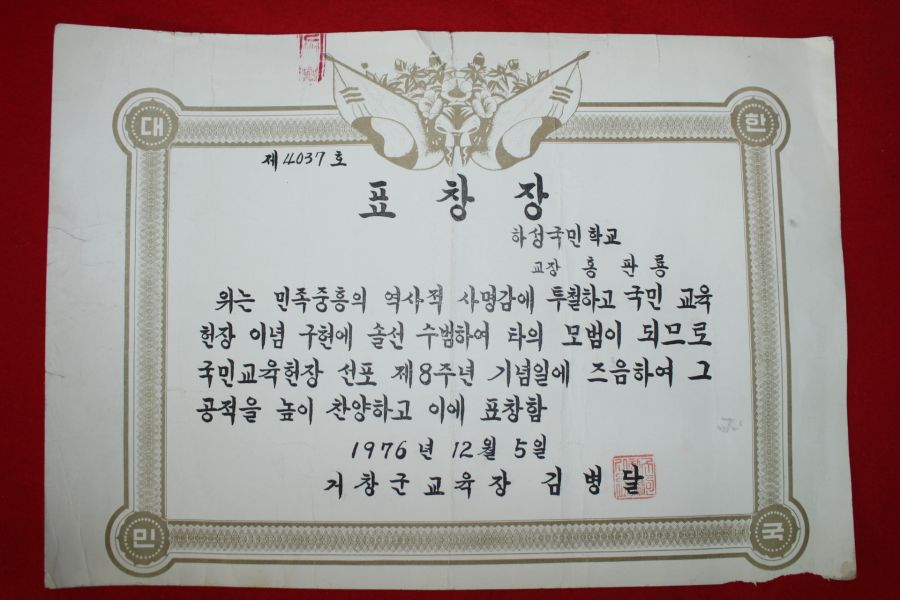 대 한
제4037호
표창장
하성국민학교
교장 홍판룡
위는 민족중흥의 역사적 사명감에 투철하고 국민 교육
헌장 이념 구현에 솔선 수범하여 타의 모범이 되므로
국민교육헌장 선포 제8주년 기념일에 즈음하여 그
공적을 높이 찬양하고 이에 표창함
1976년 12월 5일
거창군교육장 김병달
민 국